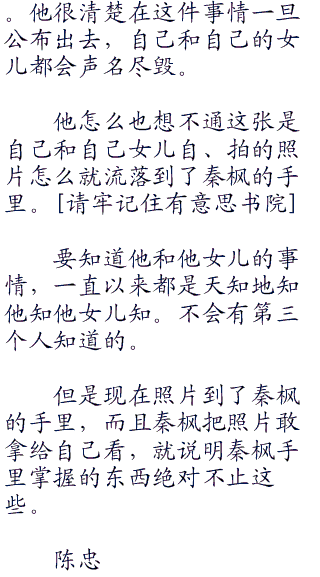 。他很清楚在这件事情一旦
公布出去，自己和自己的女
儿都会声名尽毁。
他怎么也想不通这张是
自己和自己女儿自、拍的照
片怎么就流落到了秦枫的手
里。[请牢记住有意思书院]
要知道他和他女儿的事
情，一直以来都是天知地知
他知他女儿知。不会有第三
个人知道的。
但是现在照片到了秦枫
的手里，而且秦枫把照片敢
拿给自己看，就说明秦枫手
里掌握的东西绝对不止这
些。
陈忠